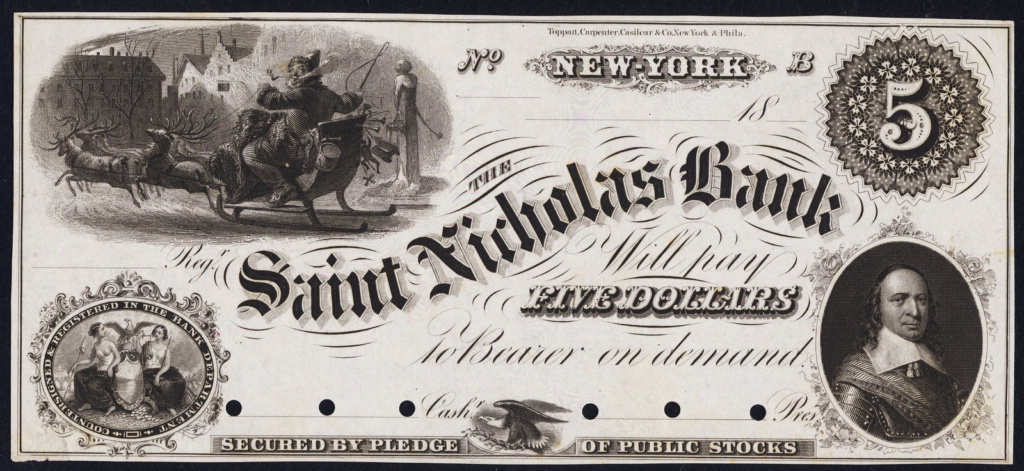 Toppan, Carpenter, Casilear & Co. New York & Phila.
No NEW-YORK B
18
5
THE
Saint Nicholas Bank
Regr.
Will pay
FIVE DOLLARS
To Bearer on demand.
COUNTERSIGNED & REGISTERED IN THE BANK DEPARTMENT
Cashr. Pres
SECURED BY PLEDGE OF PUBLIC STOCKS